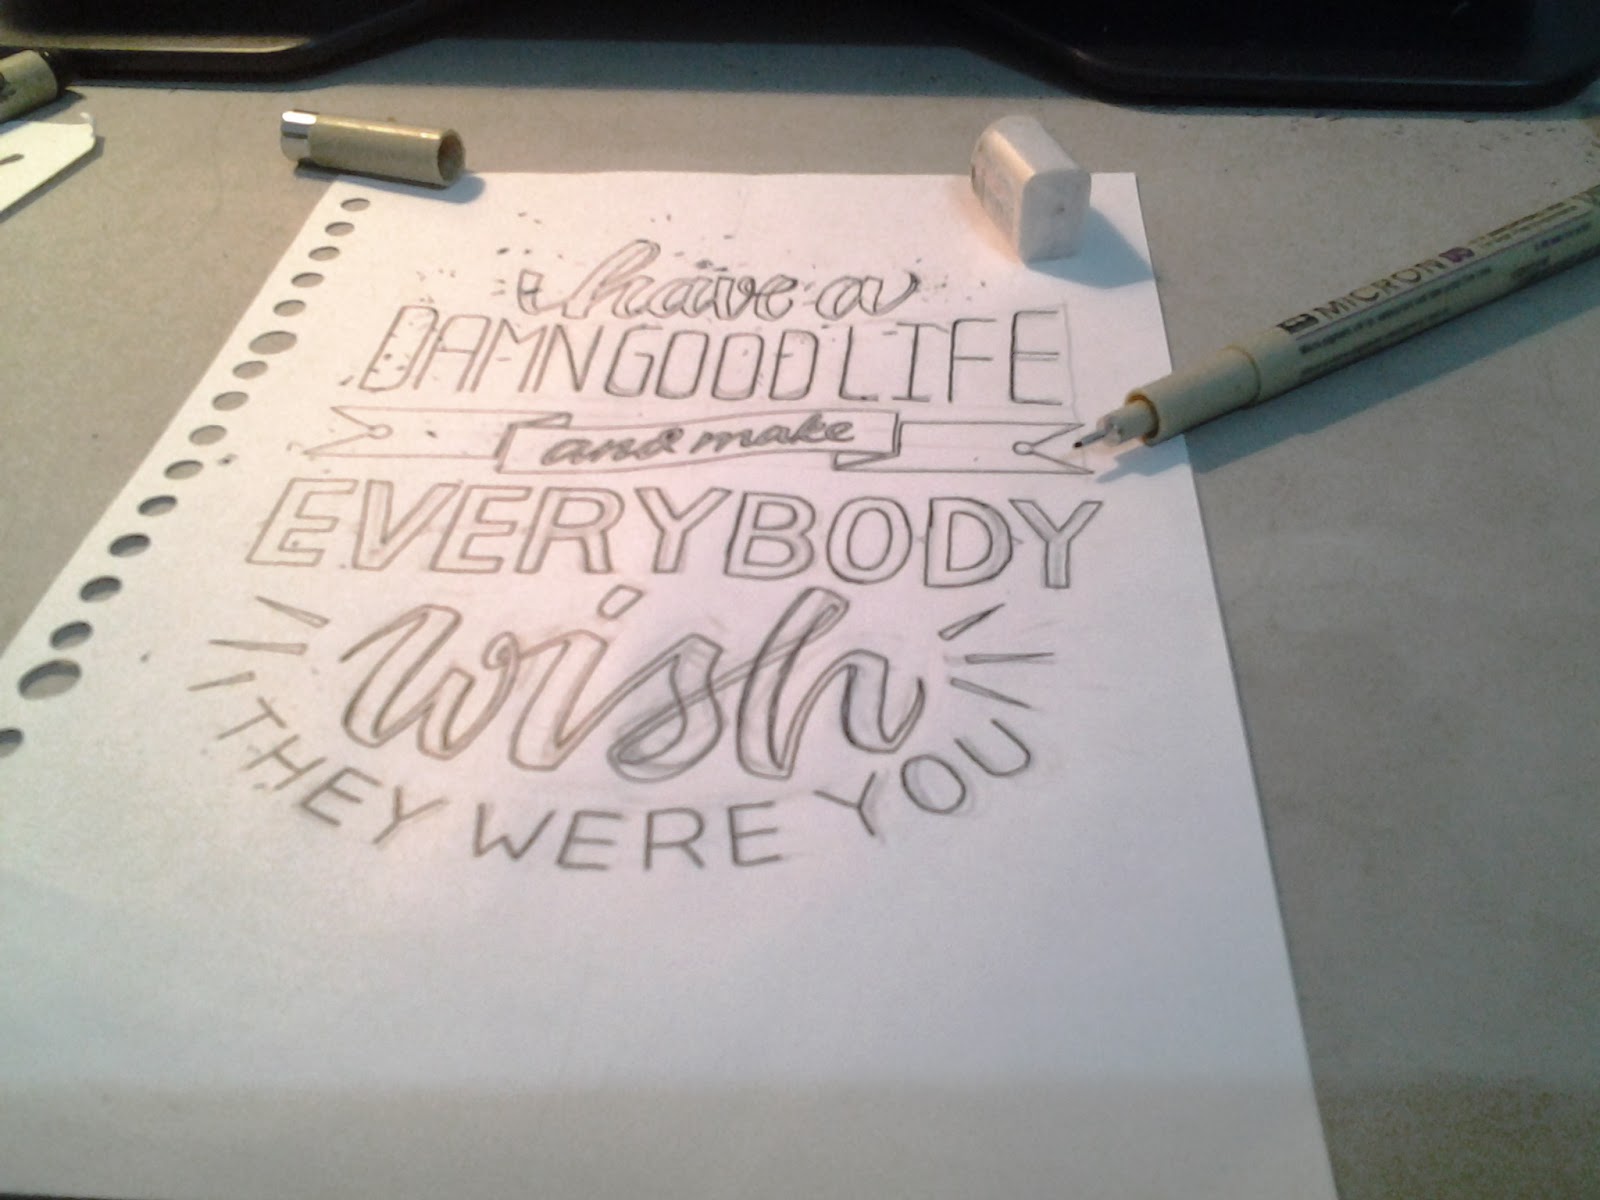 have a
DAMN GOOD LIFE
and make
EVERYBODY
wish
THEY WERE YOU
MICRON